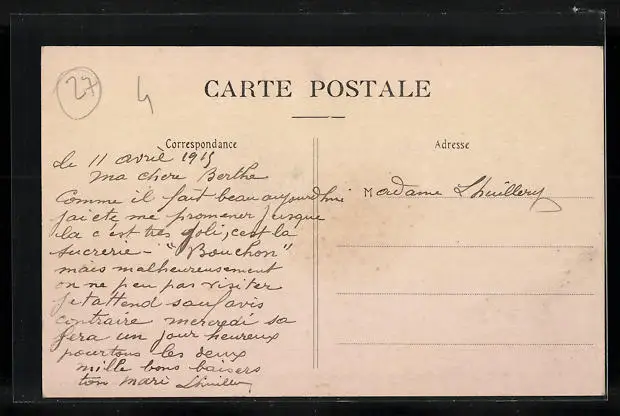 27
4
CARTE POSTALE
Correspondance
Adresse
le 11 avril 1915
ma chere Berthe
Comme il fait beau aujourdhui
jai ete me promener jusque
la c'est très joli, c'est la
sucrerie - "Bouchon"
mais malheureusement
on ne peu pas visiter
je tattend sauf avis
contraire mercredi sa
fera un jour heureux
pourtous les deux
mille bons baisers
ton mari Lhuillery
Madame Lhuillery